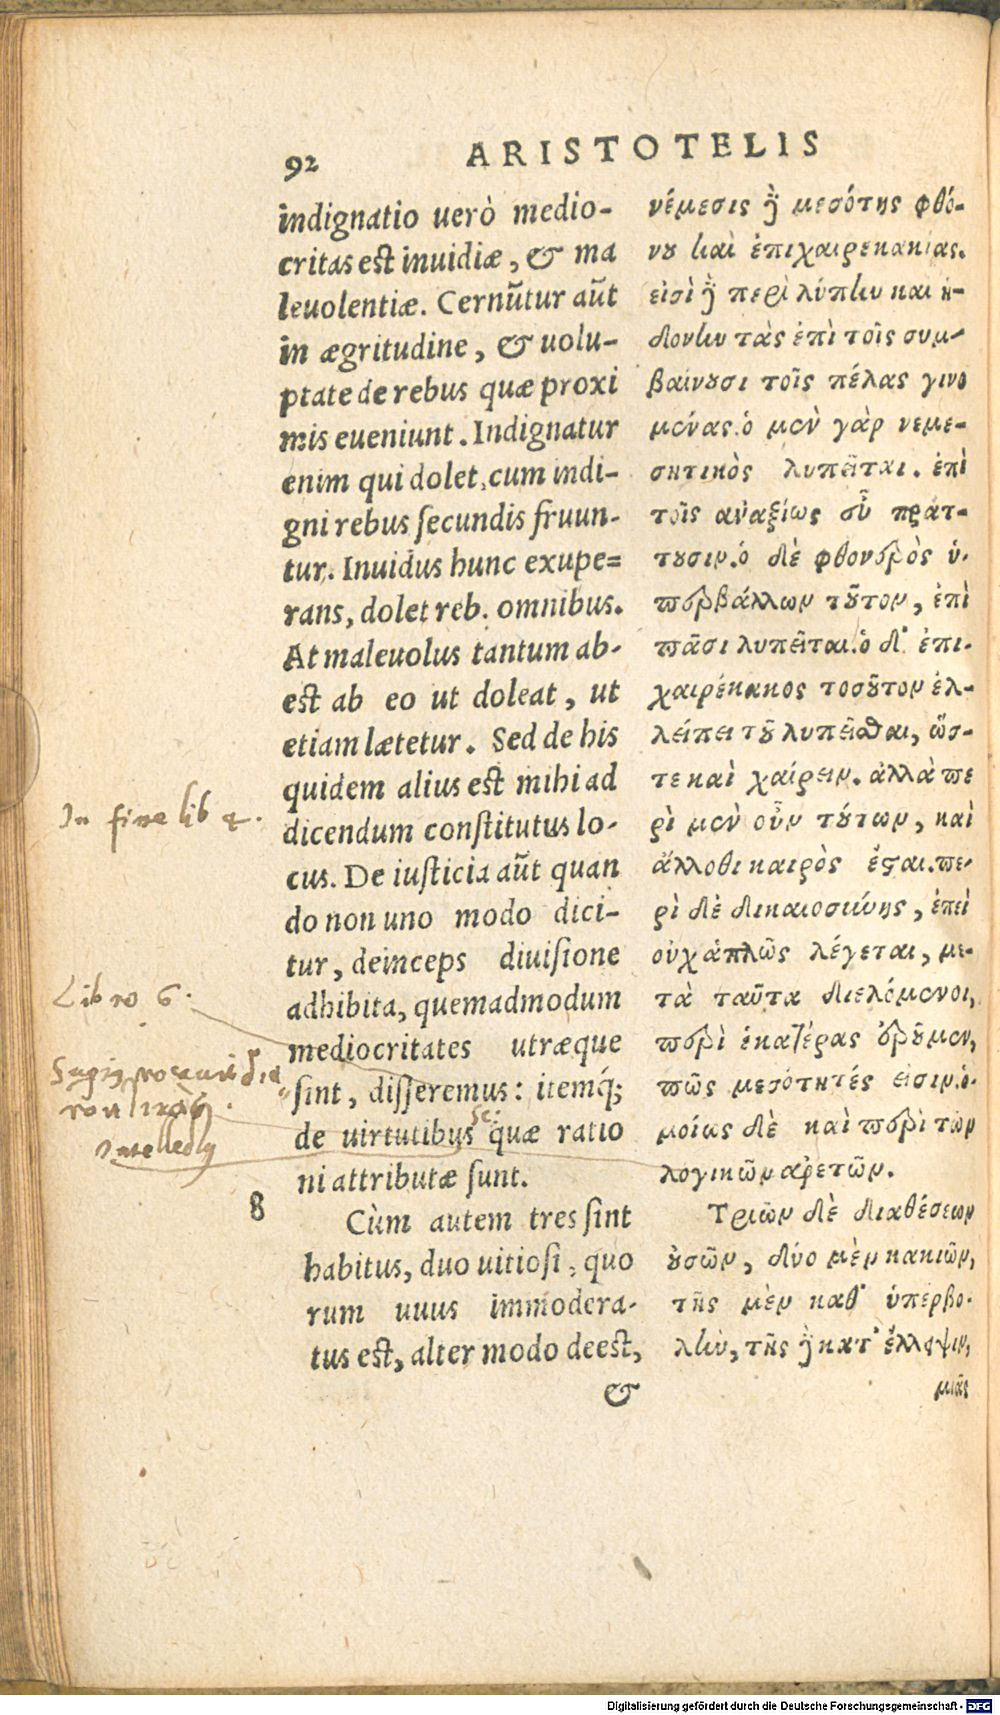 92 ARISTOTELIS
indignatio uerò medio-
critas est inuidiæ, & ma
leuolentiæ. Cernũtur aũt
in ægritudine, & uolu-
ptate de rebus quæ proxi
mis eueniunt. Indignatur
enim qui dolet, cum indi-
gni rebus secundis fruun-
tur. Inuidus hunc exupe=
rans, dolet reb. omnibus.
At maleuolus tantum ab-
est ab eo ut doleat, ut
etiam lætetur. Sed de his
quidem alius est mihi ad
dicendum constitutus lo-
cus. De iusticia aũt quan
do non uno modo dici-
tur, deinceps diuisione
adhibita, quemadmodum
mediocritates utræque
sint, disseremus: itemq́;
de uirtutibus quæ ratio
ni attributæ sunt.
8
Cùm autem tres sint
habitus, duo uitiosi, quo
rum uuus immodera-
tus est, alter modo deest,
&
νέμεσις δὲ μεσότης φθό-
νου καὶ ἐπιχαιρεκακίας.
εἰσὶ δὲ περὶ λύπην και ἡ-
δονὴν τὰς ἐπὶ τοῖς συμ-
βαίνουσι τοῖς πέλας γινο
μένας. ὁ μὲν γὰρ νεμε-
σητικὸς λυπεῖται. ἐπὶ
τοῖς ἀναξίως εὖ πράτ-
τουσιν. ὁ δὲ φθονερὸς ὑ-
περβάλλων τοῦτον, ἐπὶ
πᾶσι λυπεῖται. ὁ δ' ἐπι-
χαιρέκακος τοσοῦτον ἐλ-
λείπει τοῦ λυπεῖσθαι, ὥσ-
τε καὶ χαίρειν. ἀλλὰ πε
ρὶ μὲν οὖν τούτων, καὶ
ἄλλοθι καιρὸς ἔσται. πε-
ρὶ δὲ δικαιοσύνης, ἐπεὶ
οὐχ ἁπλῶς λέγεται, με-
τὰ ταῦτα διελόμενοι,
περὶ ἑκατέρας ἐροῦμεν,
πῶς μεσότητές εἰσιν. ὁ-
μοίως δὲ καὶ περὶ τῶν
λογικῶν ἀρετῶν.
Τριῶν δὲ διαθέσεων
οὐσῶν, δύο μὲν κακιῶν,
τῆς μὲν καθ' ὑπερβο-
λὴν, τῆς δὲ κατ' ἔλλειψιν,
μιᾶς
In fine lib 4.
Libro 6.
sc:
Digitalisierung gefördert durch die Deutsche Forschungsgemeinschaft - DFG